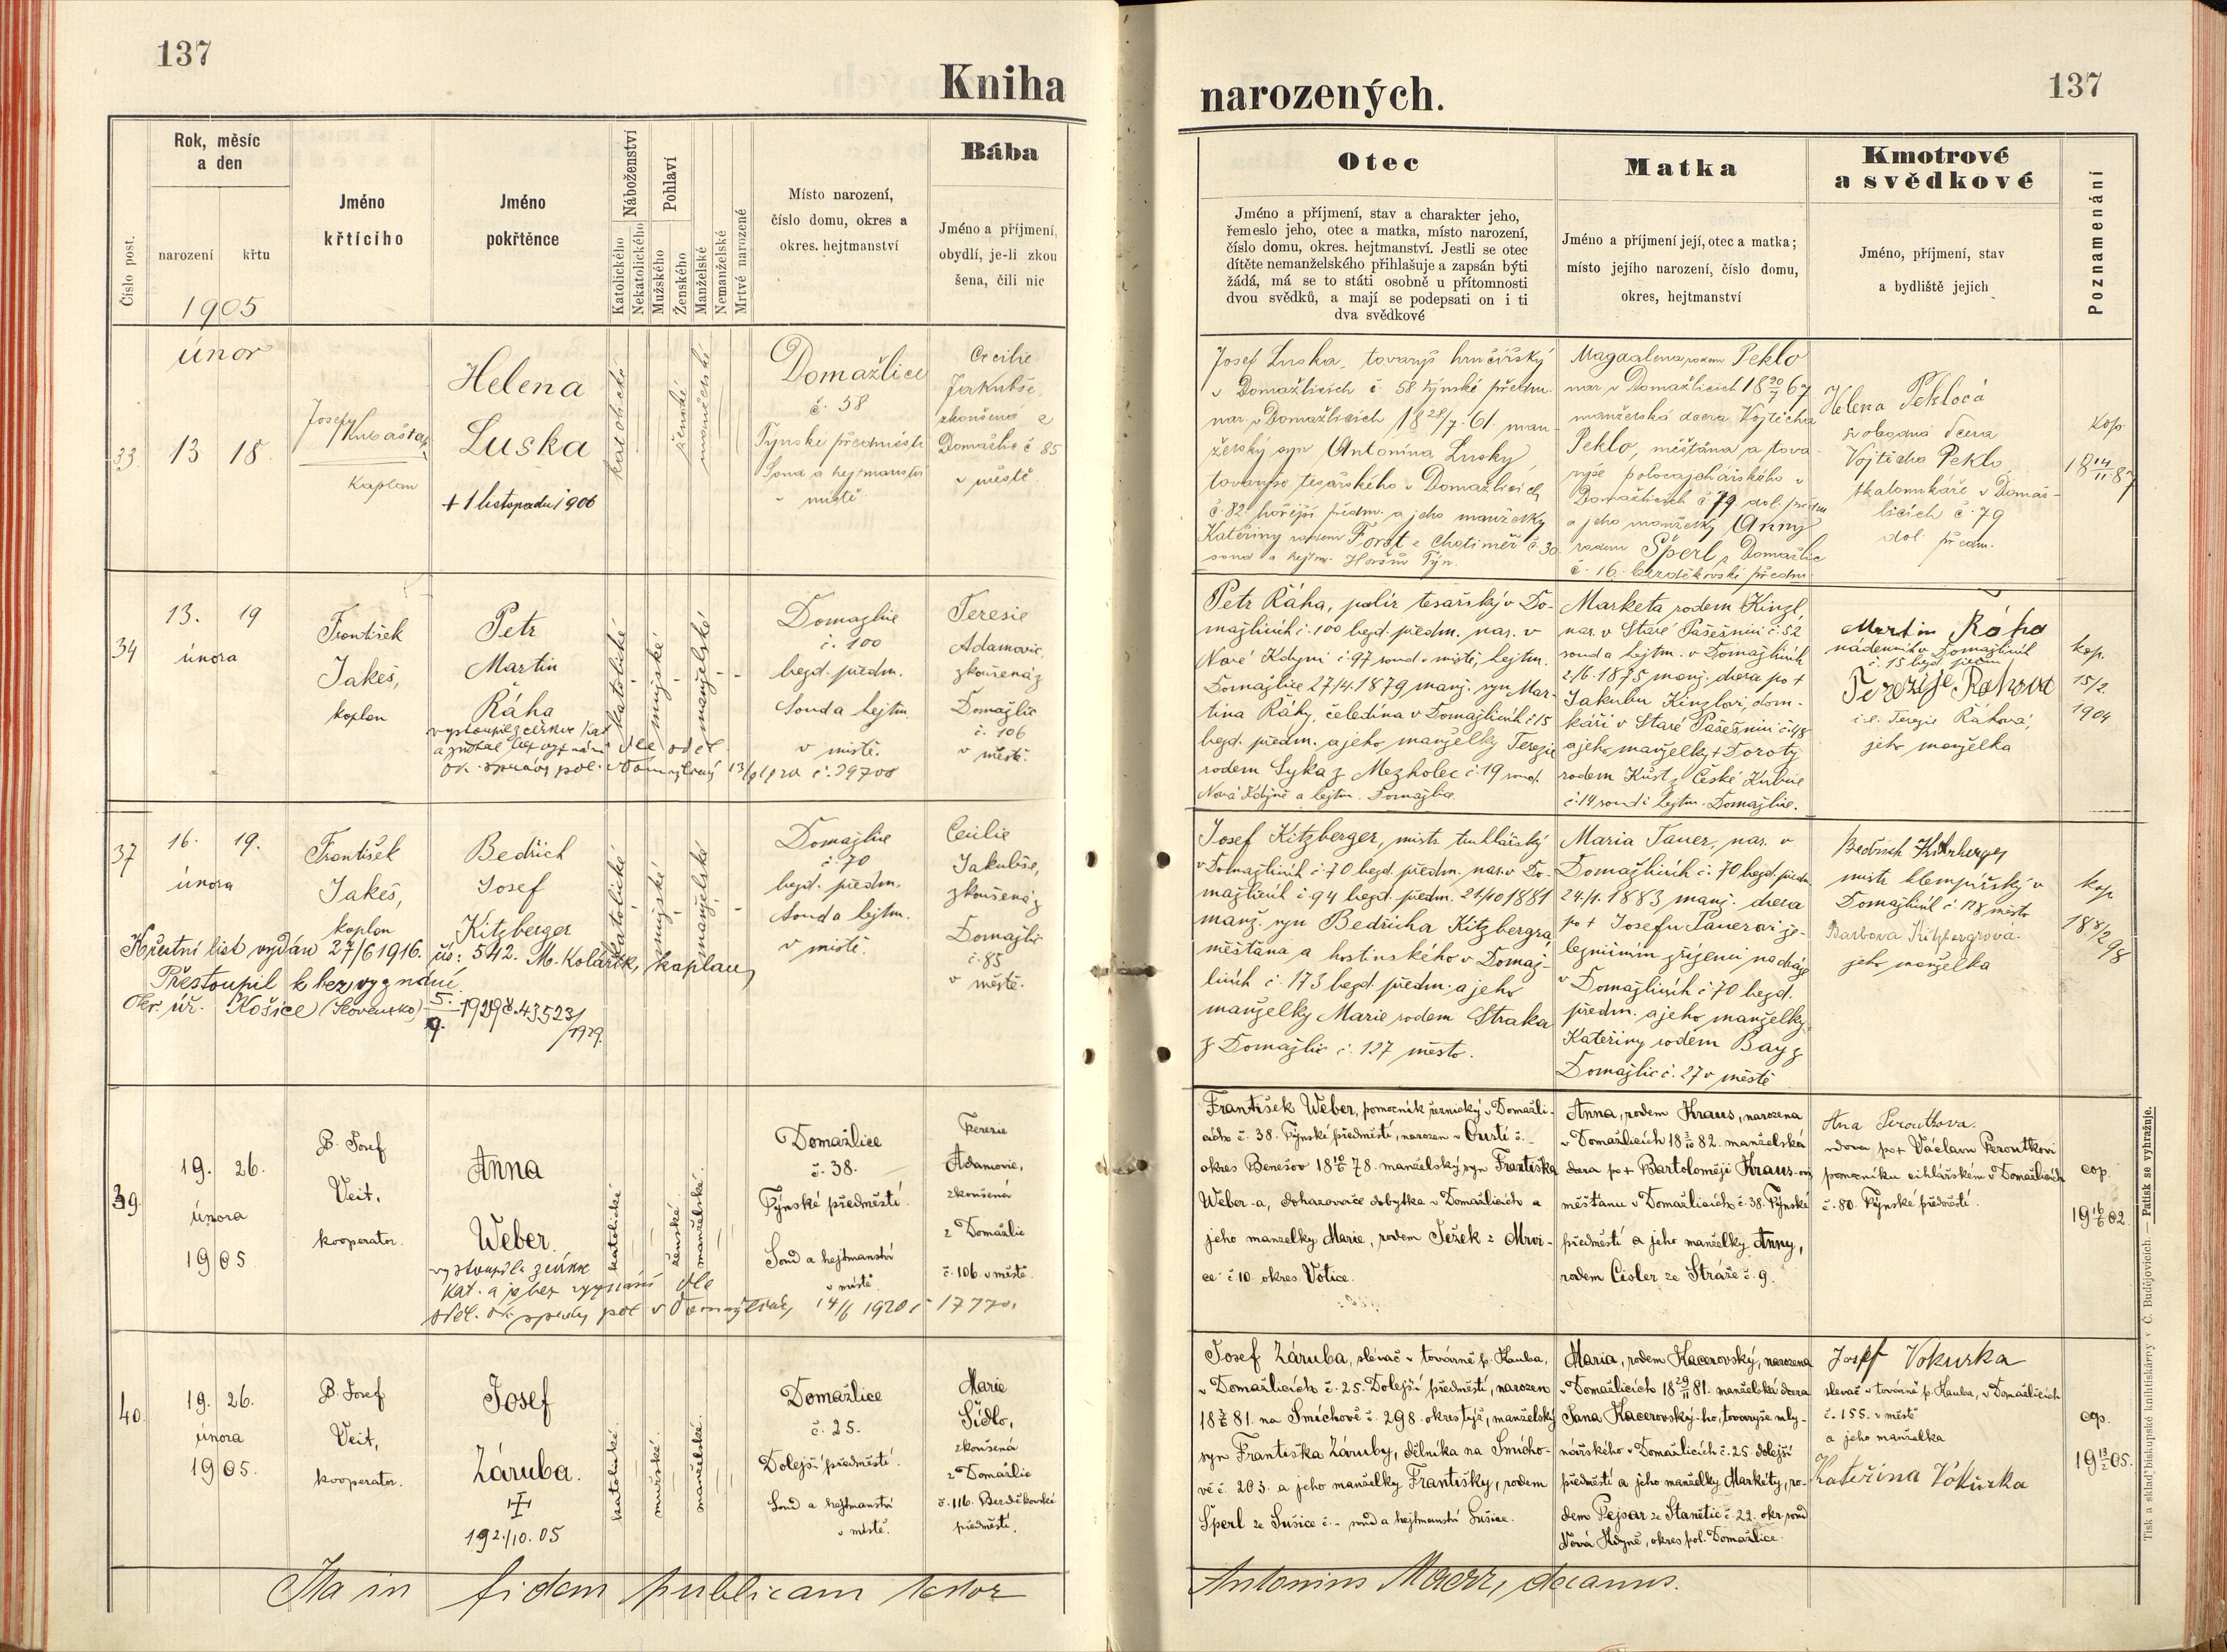 137
Kniha
Rok, měsíc
a den
Číslo post.
narození
křtu
1905
Jméno
křtícího
Jméno
pokřtěnce
Náboženství
Katolického
Nekatolického
Pohlaví
Mužského
Ženského
Manželské
Nemanželské
Mrtvé narozené
Místo narození,
číslo domu, okres a
okres. hejtmanství
Bába
Jméno a příjmení,
obydlí, je-li zkou
šena, čili nic
únor
33.
13
18.
Josef
Kaplan
Helena
Luska
+ 1 listopadu 1906
katolické
ženské
manželské
Domažlice
č. 58
Týnské předměstí
Soud a hejtmanství
v místě
Cecilie
Jakubše,
zkoušená z
Domažlic č 85
v městě.
34
13.
19
února
František
Jakeš,
kaplan
Petr
Martin
Ráha
vystoupil z církve kat
katolické
mužské
manželské
Domažlice
č. 100
bezd. předm.
Soud a hejtm.
v místě.
Teresie
Adamovic,
zkoušená z
Domažlic
č. 106
v městě.
37
16.
19.
února
František
Jakeš,
kaplan
Bedřich
Josef
Kitzberger
katolické
mužské
manželské
Domažlice
č. 70
bezd. předm.
Soud a hejtm.
v místě.
Cecilie
Jakubše,
zkoušená z
Domažlic
č. 85
v městě.
Křestní list vydán 27/6 1916. čís: 542. M. Kolářík, kaplan
Přestoupil k bezvyznání
Okr. úř. Košice (Slovensko) 5./9. 1929 č. 43523/1929.
39.
19.
26.
února
1905
P. Josef
Veit,
kooperator.
Anna
Weber.
katolické
ženské
manželské
Domažlice
č. 38.
Týnské předměstí.
Soud a hejtmanství
v místě.
Terezie
Adamovic,
zkoušená
z Domažlic
č. 106. v městě.
vystoupila z církve
kat. a je bez vyznání dle
40.
19.
26.
února
1905.
P. Josef
Veit,
kooperator.
Josef
Záruba.
192./10. 05
katolické
mužské
manželské
Domažlice
č. 25.
Dolejší předměstí.
Soud a hejtmanství
v místě.
Marie
Sidlo,
zkoušená
z Domažlic
č. 116. Bezděkovské
předměstí.
Ita in fidem publicam testor
137
narozených.
Otec
Jméno a příjmení, stav a charakter jeho,
řemeslo jeho, otec a matka, místo narození,
číslo domu, okres. hejtmanství. Jestli se otec
dítěte nemanželského přihlašuje a zapsán býti
žádá, má se to státi osobně u přítomnosti
dvou svědků, a mají se podepsati on i ti
dva svědkové
Matka
Jméno a příjmení její, otec a matka;
místo jejího narození, číslo domu,
okres, hejtmanství
Kmotrové
a svědkové
Jméno, příjmení, stav
a bydliště jejich
Poznamenání
Josef Luska, tovaryš hrnčířský
v Domažlicích č 58 týnské předm.
nar. v Domažlicích 18 28/7 61. man-
želský syn Antonína Lusky,
tovaryše tesařského v Domažlicích
č. 82. hořejší předm. a jeho manželky
Kateřiny rodem Forst z Chotiměř č. 30
soud a hejtm. Horšův Týn.
Magdalena rodem Peklo
nar. v Domažlicích 18 20/7 67
manželská dcera Vojtěcha
Peklo, měštána a tova-
ryše
Domažlicích č 79 dol. předm
a jeho manželky Anny
rodem Šperl z Domažlic
č. 16. bezděkovské předm.
Helena Peklová
svobodná dcera
Vojtěcha Peklo
tkalounkáře v Domaž-
licích č. 79
dol. předm.
kop.
18 14/11 87
Petr Ráha, polír tesařský v Do-
mažlicích č. 100 bezd. předm. nar. v
Nové Kdyni č 97 soud v místě, hejtm.
Domažlice 27/4. 1879 manž. syn Mar-
tina Ráhy, čeledína v Domažlicích č 15
bezd. předm. a jeho manželky Terezie
rodem Syka z Mezholec č. 19 soud.
Nová Kdyně a hejtm. Domažlice.
Marketa rodem Kinzl,
nar. v Staré Pasečnici č. 52
soud a hejtm. v Domažlicích
2/6. 1875 manž. dcera po +
Jakubu Kinzlovi, dom-
káři v Staré Pasečnici č. 48
a jeho manželky + Doroty
rodem Küst z České Kubice
č. 14 soud i hejtm. Domažlice.
Martin Ráha
nádenník v Domažlicích
č. 15 bezd. předm
Terezije Rahova
t.č. Terezie Ráhová,
jeho manželka
kop.
15/2.
1904
Josef Kitzberger, mistr truhlářský
v Domažlicích č. 70 bezd. předm. nar. v Do-
mažlicích č 94 bezd. předm. 21/10 1881
manž. syn Bedřicha Kitzbergra,
měštána a hostinského v Domaž-
licích č. 173 bezd. předm. a jeho
manželky Marie rodem Straka
z Domažlic č. 127 město.
Maria Tauer, nar. v
Domažlicích č. 70 bezd. předm.
24/1. 1883 manž. dcera
po + Josefu Tauerovi že-
lezničním zřízenci na dráze
v Domažlicích č. 70 bezd.
předm. a jeho manželky
Kateřiny rodem Bay z
Domažlic č. 27 v městě
Bedřich Kitzberger
mistr klempířský v
Domažlicích č. 128 město
Barbora Kitzbergrová.
jeho manželka
kop
18 8/2 98
František Weber, pomocník řeznický v Domažli-
cích č. 38. Týnské předměstí, narozen v Oustí č. -
okres Benešov 18 10/6 78. manželský syn Františka
Weber-a, dohazovače dobytka v Domažlicích a
jeho manželky Marie, rodem Ježek z Mrvi-
ce č 10. okres Votice.
Anna, rodem Kraus, narozena
v Domažlicích 18 3/10 82. manželská
dcera po + Bartoloměji Kraus-ovi
měšťanu v Domažlicích č. 38. Týnské
předměstí a jeho manželky Anny,
rodem Cisler ze Stráže č. 9.
Ana Peroutkova.
vdova po + Václavu Peroutkovi
pomocníku cihlářském v Domažlicích
č. 80. Týnské předměstí.
cop.
19 16/6 02.
Josef Záruba, slévač v továrně p. Hauba,
v Domažlicích č. 25. Dolejší předměstí, narozen
18 3/8 81. na Smíchově č. 298. okres týž, manželský
syn Františka Záruby, dělníka na Smícho-
vě č. 203. a jeho manželky Františky, rodem
Šperl ze Sušice č. - soud a hejtmanství Sušice.
Maria, rodem Kacerovský, narozena
v Domažlicích 18 29/11 81. manželská dcera
Jana Kacerovský-ho, tovaryše mly-
nářského v Domažlicích č. 25 dolejší
předměstí a jeho manželky Markéty, ro-
dem Pejsar ze Stanětic č. 22. okr. soud
Nová Kdyně, okres pol. Domažlice.
Josef Vokurka
slevač v továrně p. Hauba, v Domažlicích
č. 155. v městě
a jeho manželka
Kateřina Vokurka
cop.
19 13/2 05.
Antonius Maerz, decanus.
Tisk a sklad biskupské knihtiskárny v Č. Budějovicích. — Patisk se vyhražuje.